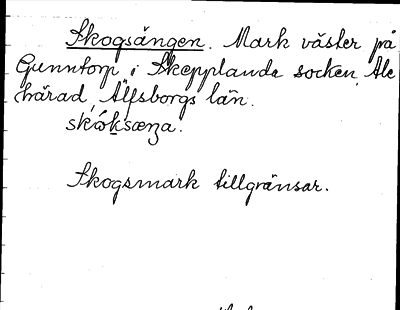 Skogsängen. Mark väster på
Gunntorp i Skepplanda socken, Ale
härad, Älfsborgs län.
Skogsmark tillgränsar.